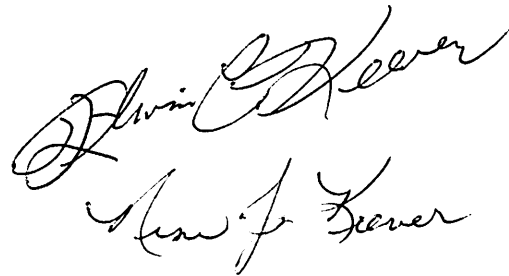 Edwin C. Keever
Nina J. Keever